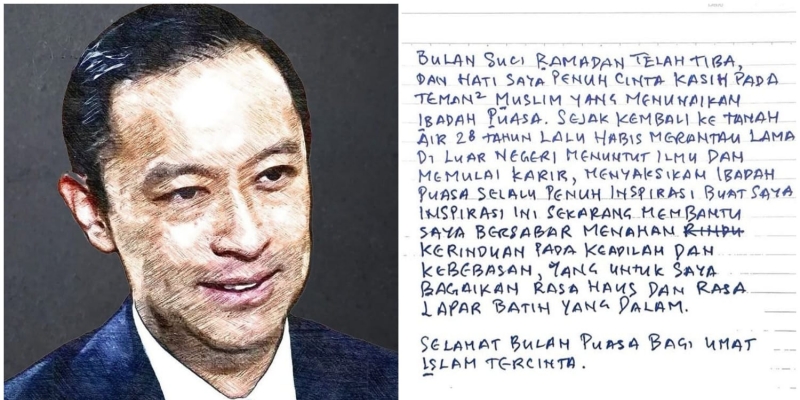 BULAN SUCI RAMADAN TELAH TIBA,
DAN HATI SAYA PENUH CINTA KASIH PADA
TEMAN² MUSLIM YANG MENUNAIKAN
IBADAH PUASA. SEJAK KEMBALI KE TANAH
AIR 28 TAHUN LALU HABIS MERANTAU LAMA
DI LUAR NEGERI MENUNTUT ILMU DAN
MEMULAI KARIR, MENYAKSIKAN IBADAH
PUASA SELALU PENUH INSPIRASI BUAT SAYA
INSPIRASI INI SEKARANG MEMBANTU
SAYA BERSABAR MENAHAN RINDU
KERINDUAN PADA KEADILAN DAN
KEBEBASAN, YANG UNTUK SAYA
BAGAIKAN RASA HAUS DAN RASA
LAPAR BATIN YANG DALAM.
SELAMAT BULAN PUASA BAGI UMAT
ISLAM TERCINTA.